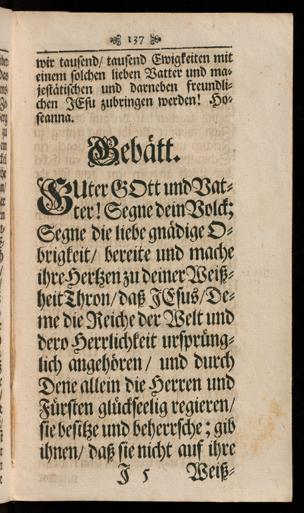 137
wir tausend/ tausend Ewigkeiten mit
einem solchen lieben Vatter und ma-
jestätischen und darneben freundli-
chen JEsu zubringen werden! Ho-
seanna.
Gebätt.
GUter GOtt und Vat-
ter! Segne dein Volck;
Segne die liebe gnädige O-
brigkeit/ bereite und mache
ihre Hertzen zu deiner Weiß-
heit Thron/ daß JEsus/ De-
me die Reiche der Welt und
dero Herrlichkeit ursprüng-
lich angehören/ und durch
Dene allein die Herren und
Fürsten glückseelig regieren/
sie besitze und beherrsche; gib
ihnen/ daß sie nicht auf ihre
J 5 Weiß-